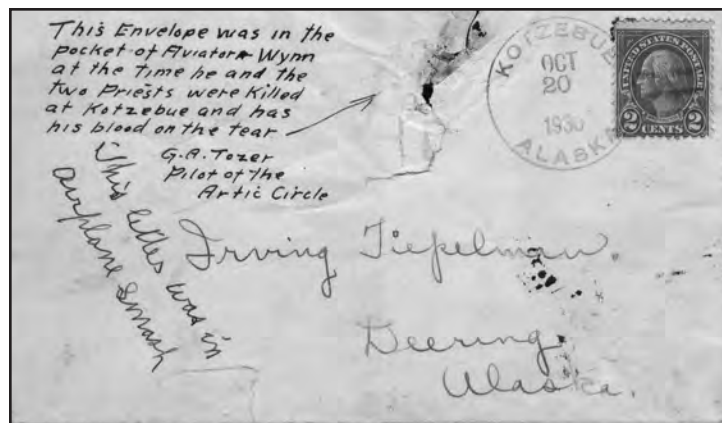 This Envelope was in the
pocket of Aviator Wynn
at the Time he and the
Two Priests were Killed
at Kotzebue and has
his blood on the tear
G.A. Tozer
Pilot of the
Artic Circle
This letter was in
airplane smash
KOTZEBUE
OCT
20
1930
ALASKA
UNITED STATES POSTAGE
2 CENTS 2
Irving Tiepelman.
Deering,
Alaska.